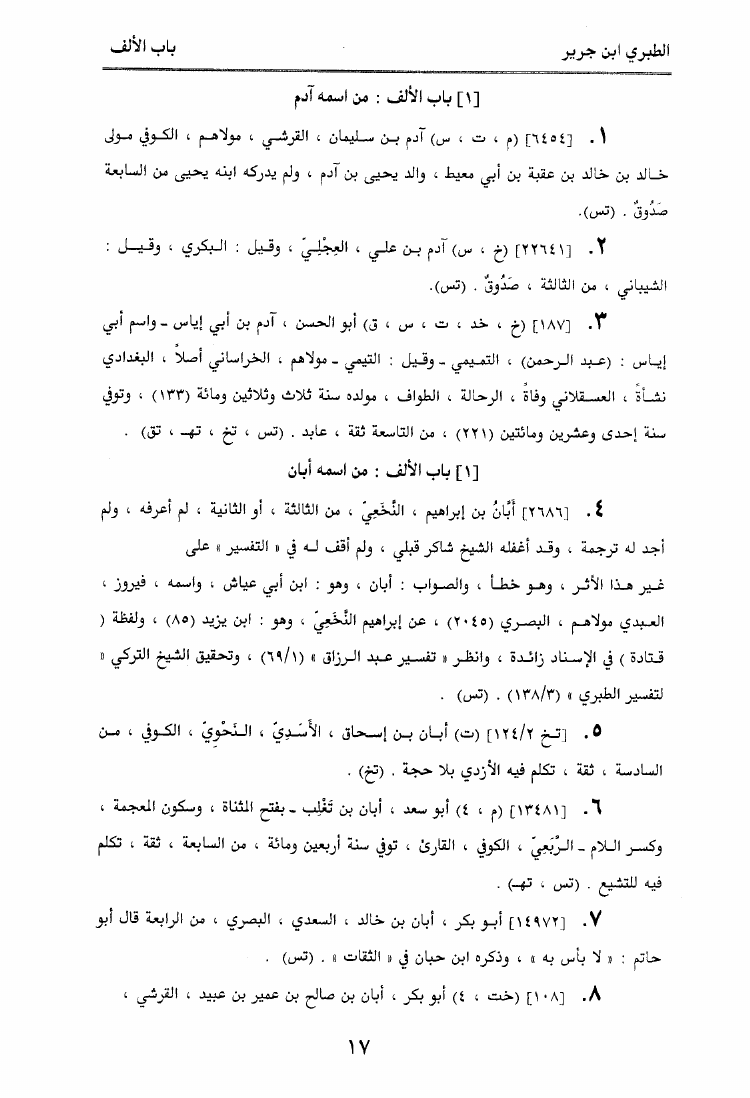 الطبري ابن جرير
باب الألف
[١] باب الألف : من اسمه آدم
١. [٦٤٥٤] (م ، ت ، س) آدم بـن سـليمان ، القرشي ، مولاهـم ، الكـوفي مـولى
خـالد بن خالد بن عقبة بن أبي معيط ، والد يحيى بن آدم ، ولم يدركه ابنه يحيى من السابعة
صَدُوقٌ . (تس).
٢. [٢٢٦٤١] (خ ، س) آدم بـن علـي ، العِجْلِـيّ ، وقـيل : الـبكري ، وقـيـل :
الشيباني ، من الثالثة ، صَدُوقٌ . (تس).
٣. [١٨٧] (خ ، خد ، ت ، س ، ق) أبو الحسن ، آدم بن أبي إياس ـ واسم أبي
إيـاس : (عـبد الـرحمن) ، التمـيمي ـ وقـيل : التيمي ـ مولاهم ، الخراساني أصلاً ، البغدادي
نشـأةً ، العسـقلاني وفاةً ، الرحالة ، الطواف ، مولده سنة ثلاث وثلاثين ومائة (١٣٣) ، وتوفي
سنة إحدى وعشرين ومائتين (٢٢١) ، من التاسعة ثقة ، عابد . (تس ، تخ ، تهـ ، تق) .
[١] باب الألف : من اسمه أبان
٤. [٢٦٨٦] أَبَّانُ بن إبراهيم ، النَّخَعِيّ ، من الثالثة ، أو الثانية ، لم أعرفه ، ولم
أجد له ترجمة ، وقـد أغفله الشيخ شاكر قبلي ، ولم أقف لـه في « التفسير » على
غـير هـذا الأثـر ، وهـو خطـأ ، والصواب : أبان ، وهو : ابن أبي عياش ، واسمه ، فيروز ،
العـبدي مولاهـم ، البصـري (٢٠٤٥) ، عن إبراهيم النَّخَعِيّ ، وهو : ابن يزيد (٨٥) ، ولفظة (
قـتادة ) في الإسـناد زائـدة ، وانظـر « تفسـير عـبد الـرزاق » (٦٩/١) ، وتحقيق الشيخ التركي «
لتفسير الطبري » (١٣٨/٣) . (تس) .
٥. [تـخ ١٢٤/٢] (ت) أبـان بـن إسـحاق ، الأَسَـدِيّ ، الـنَحْوِيّ ، الكـوفي ، مـن
السادسة ، ثقة ، تكلم فيه الأزدي بلا حجة . (تخ) .
٦. [١٣٤٨١] (م ، ٤) أبو سعد ، أبان بن تَغْلِب ـ بفتح المثناة ، وسكون المعجمة ،
وكسـر الـلام ـ الـرُبَعِيّ ، الكوفي ، القارئ ، توفي سنة أربعين ومائة ، من السابعة ، ثقة ، تكلم
فيه للتشيع . (تس ، تهـ) .
٧. [١٤٩٧٢] أبـو بكر ، أبان بن خالد ، السعدي ، البصري ، من الرابعة قال أبو
حاتم : « لا بأس به » ، وذكره ابن حبان في « الثقات » . (تس) .
٨. [١٠٨] (خت ، ٤) أبو بكر ، أبان بن صالح بن عمير بن عبيد ، القرشي ،
١٧